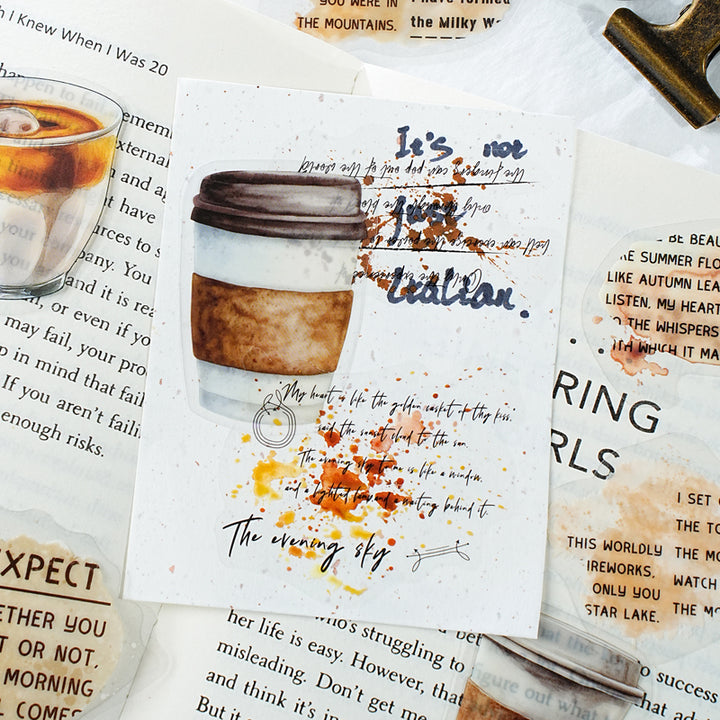 h I Knew When I Was 20
YOU WERE IN
THE MOUNTAINS.
I have formed
the Milky Wa
happen to fail
ememb
external
and ag
at have
urces to s
pany. You
and it is rea
or even if yo
may fail, your pro
p in mind that fail
If you aren't failin
enough risks.
It's not
the fingers can pop out of the world
only through
just
well can experience the
Italian.
"My heart is like the golden casket of thy kiss,"
said the sunset cloud to the sun.
The evening sky to me is like a window,
and a lighted lamp and a waiting behind it.
The evening sky
BE BEAU
KE SUMMER FLO
LIKE AUTUMN LEA
LISTEN, MY HEART
O THE WHISPERS
ITH WHICH IT MA
RING
RLS
I SET
THE TO
THIS WORLDLY
THE MO
IREWORKS,
WATCH
ONLY YOU
THE MO
STAR LAKE.
EXPECT
ETHER YOU
T OR NOT,
MORNING
L COMES
who's struggling to
her life is easy. However, that
misleading. Don't get me
and think it's in
But it
bet
at the
to success
figure out what